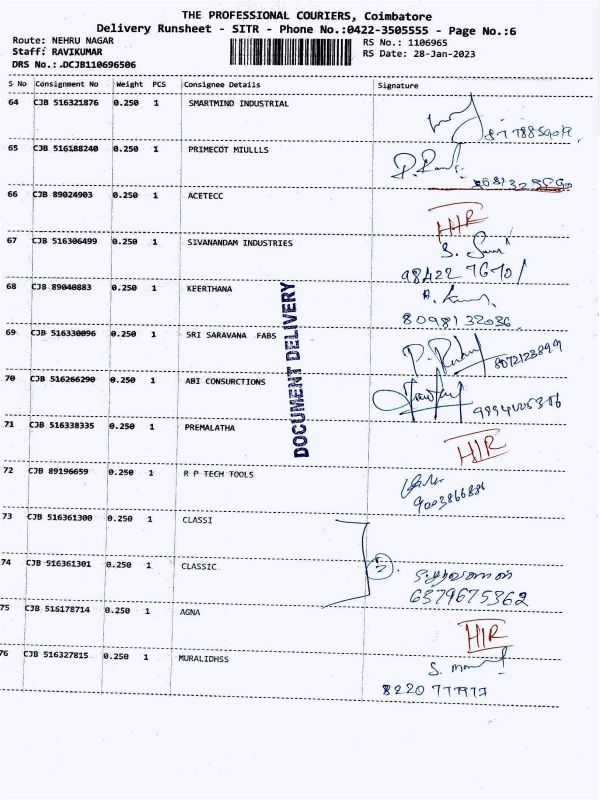 THE PROFESSIONAL COURIERS, Coimbatore
Delivery Runsheet - SITR - Phone No.:0422-3505555 - Page No.:6
Route: NEHRU NAGAR RS No.: 1106965
Staff: RAVIKUMAR RS Date: 28-Jan-2023
DRS No.:.DCJB110696506
S No Consignment No Weight PCS Consignee Details Signature
64 CJB 516321876 0.250 1 SMARTMIND INDUSTRIAL
65 CJB 516188240 0.250 1 PRIMECOT MIULLLS
66 CJB 89024903 0.250 1 ACETECC
HIR
67 CJB 516306499 0.250 1 SIVANANDAM INDUSTRIES
98422 76701
68 CJB 89040883 0.250 1 KEERTHANA
8098132036
69 CJB 516330096 0.250 1 SRI SARAVANA FABS
8072123899
70 CJB 516266290 0.250 1 ABI CONSURCTIONS
DOCUMENT DELIVERY
71 CJB 516338335 0.250 1 PREMALATHA
HIR
72 CJB 89196659 0.250 1 R P TECH TOOLS
9003866886
73 CJB 516361300 0.250 1 CLASSI
74 CJB 516361301 0.250 1 CLASSIC
6379675362
75 CJB 516178714 0.250 1 AGNA
HIR
76 CJB 516327815 0.250 1 MURALIDHSS
8220777977